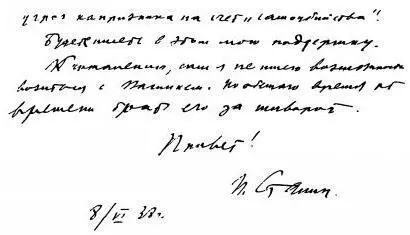 угроз капризника на счет "самоубийства".
Будете иметь в этом мою поддержку.
К сожалению, сам я не имею возможности
возиться с . Но обещаю время от
времени брать его за шиворот.
Привет!
И. Сталин.
8/VI 38 г.